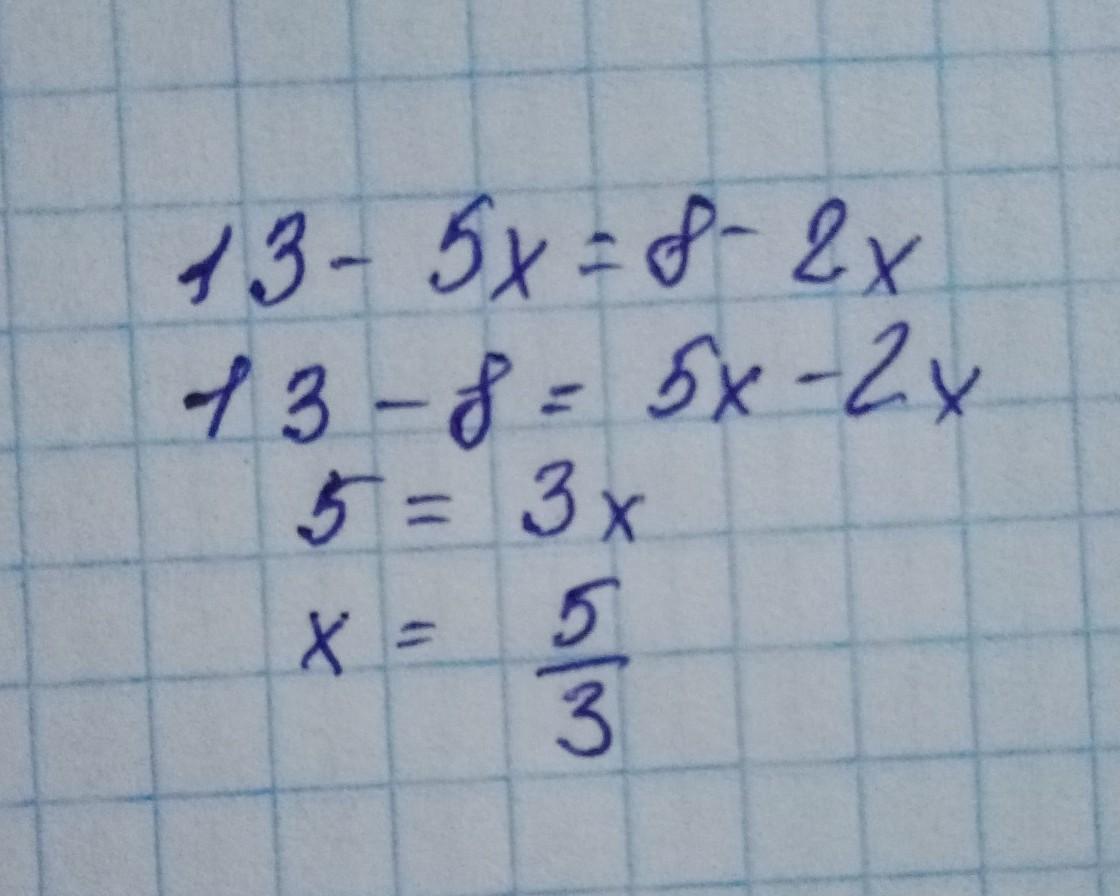 13 - 5x = 8 - 2x
13 - 8 = 5x - 2x
5 = 3x
x = 5/3